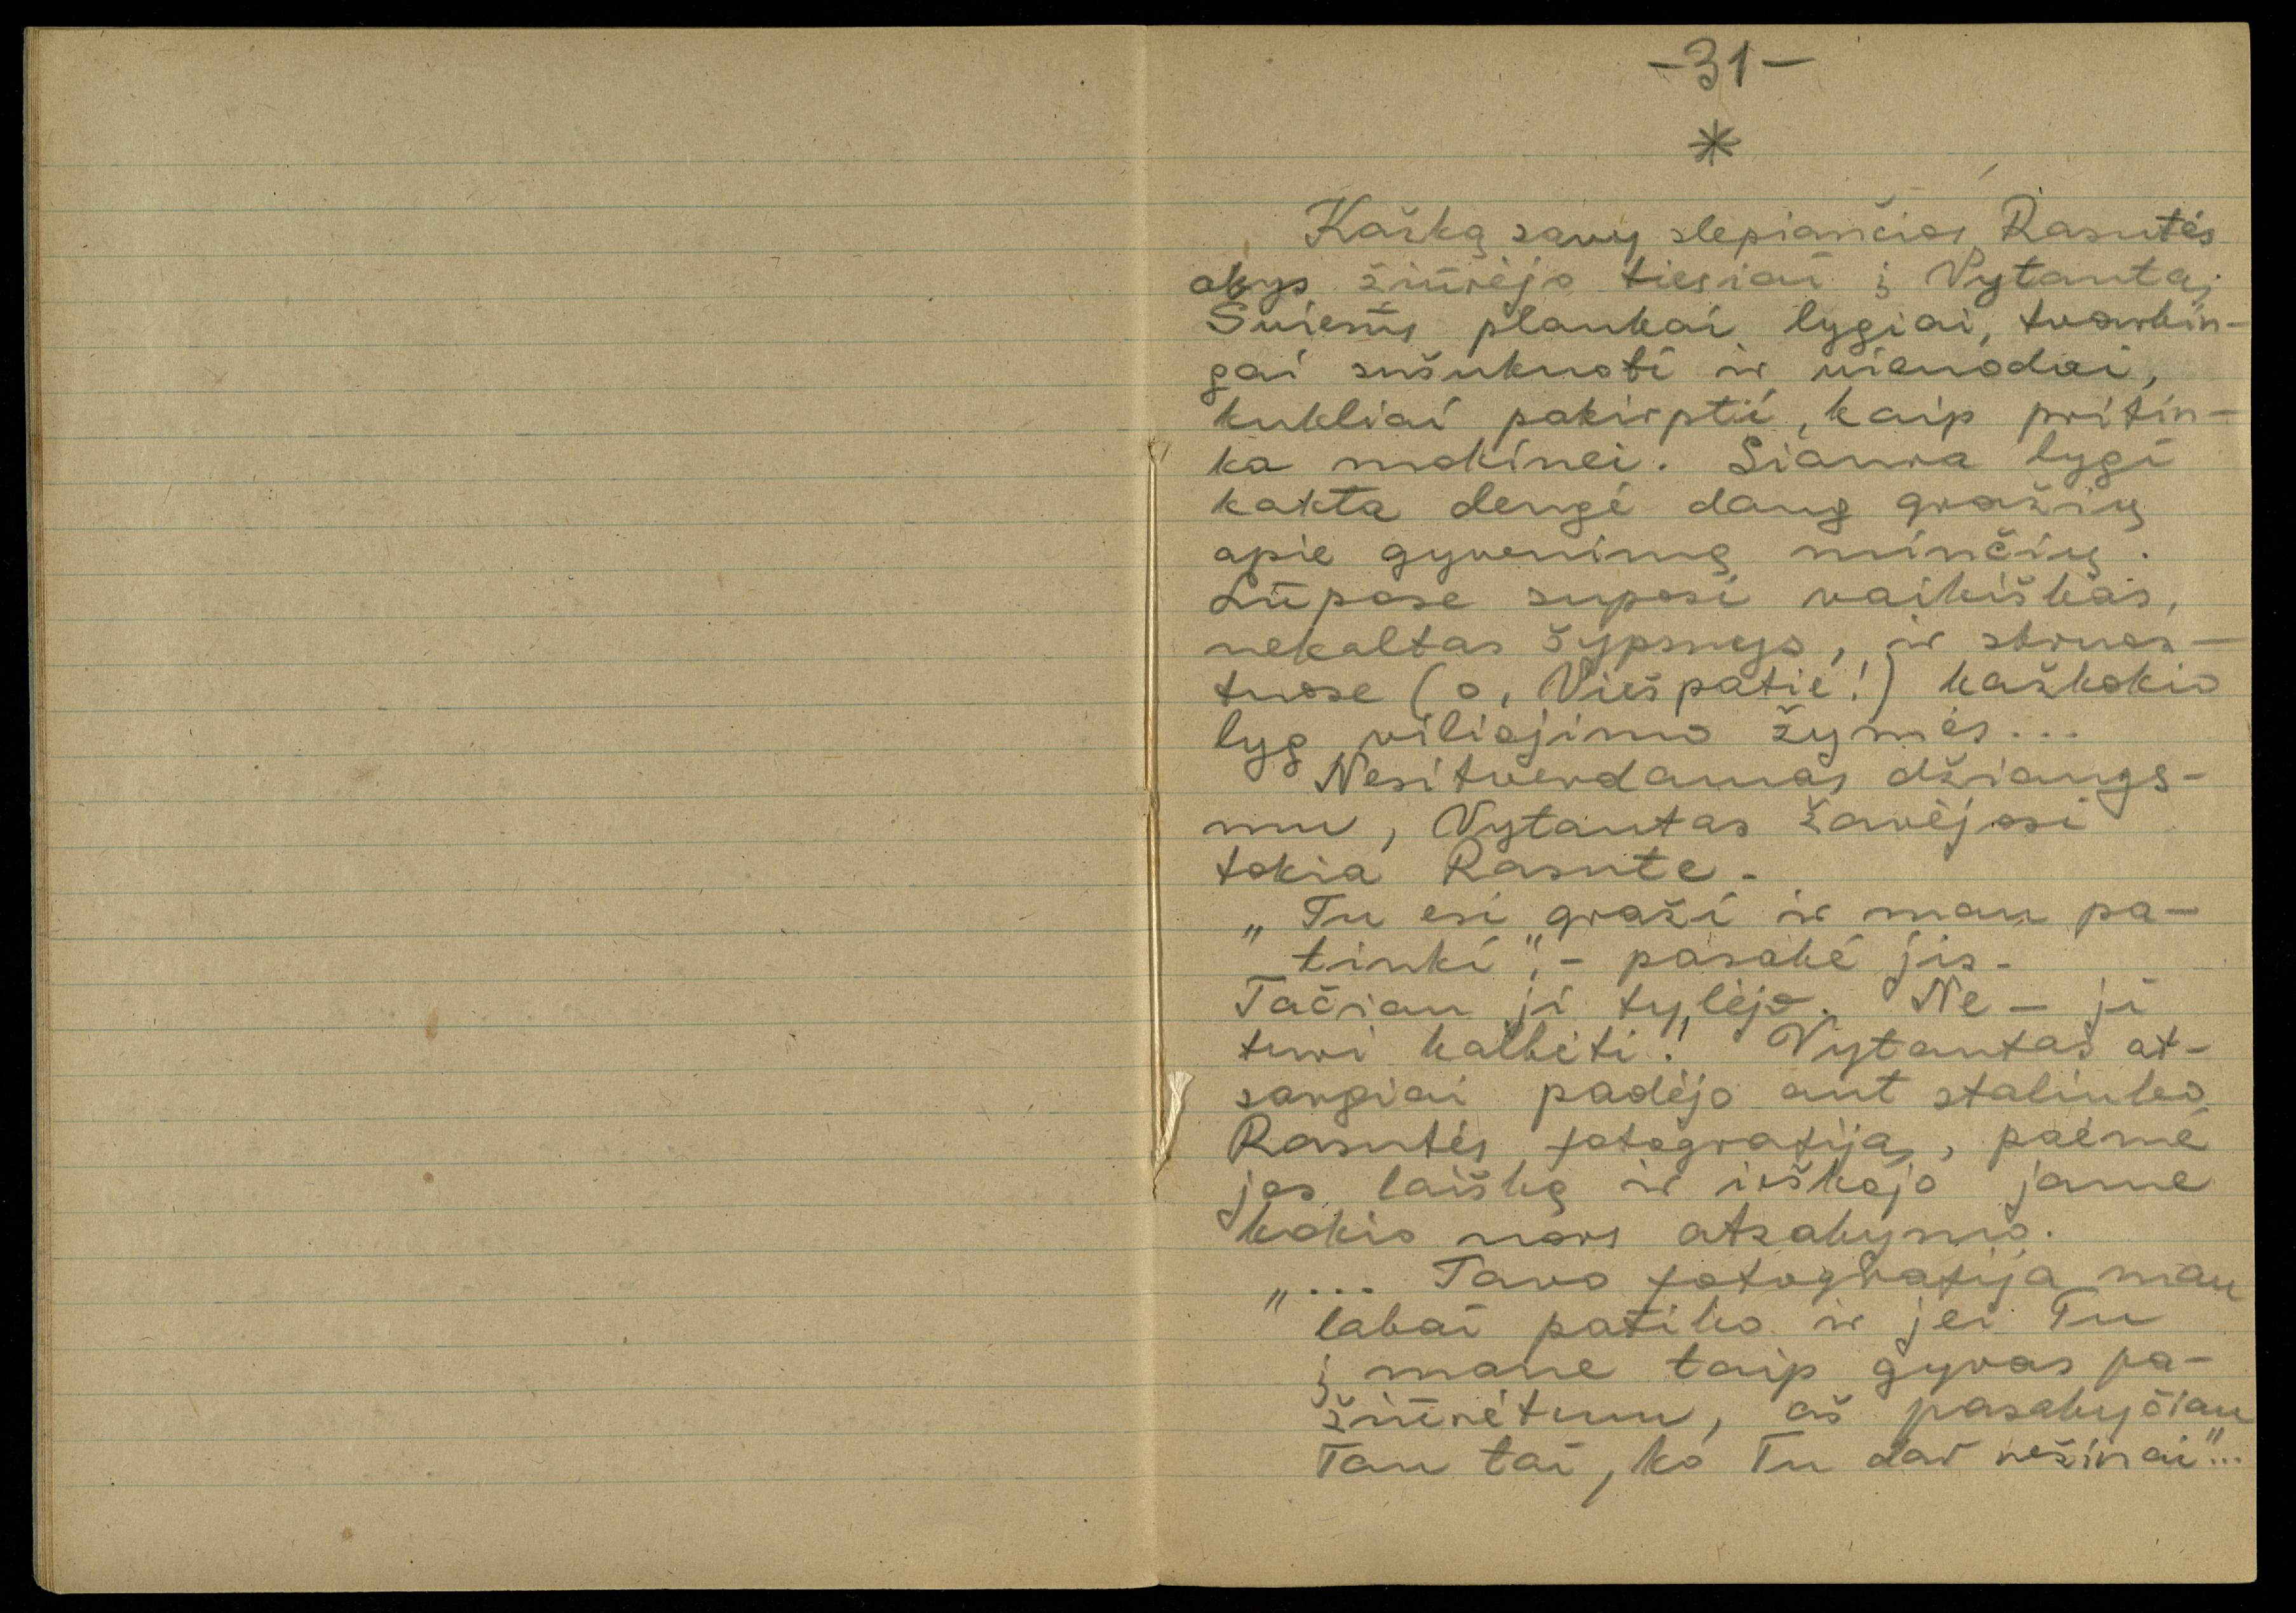 -31-
*
Kažką savy slepiančios Rasutės
akys žiūrėjo tiesiai į Vytautą.
Šviesūs plaukai lygiai, tvarkin-
gai sušukuoti ir vienodai,
kukliai pakirpti, kaip pritin-
ka mokinei. Siaura lygi
kakta dengė daug gražių
apie gyvenimą minčių.
Lūpose suposi vaikiškas,
nekaltas šypsnys, ir skruos-
tuose (o, Viešpatie!) kažkokio
lyg viliojimo žymės...
Nesitverdamas džiaugs-
mu, Vytautas žavėjosi
tokia Rasute.
„Tu esi graži ir man pa-
tinki", - pasakė jis.
Tačiau ji tylėjo. Ne - ji
turi kalbėti! Vytautas at-
sargiai padėjo ant staliuko
Rasutės fotografiją, paėmė
jos laišką ir ieškojo jame
kokio nors atsakymo.
„... Tavo fotografija man
labai patiko ir jei Tu
į mane taip gyvas pa-
žiūrėtum, aš pasakyčiau
Tau tai, ko Tu dar nežinai"...